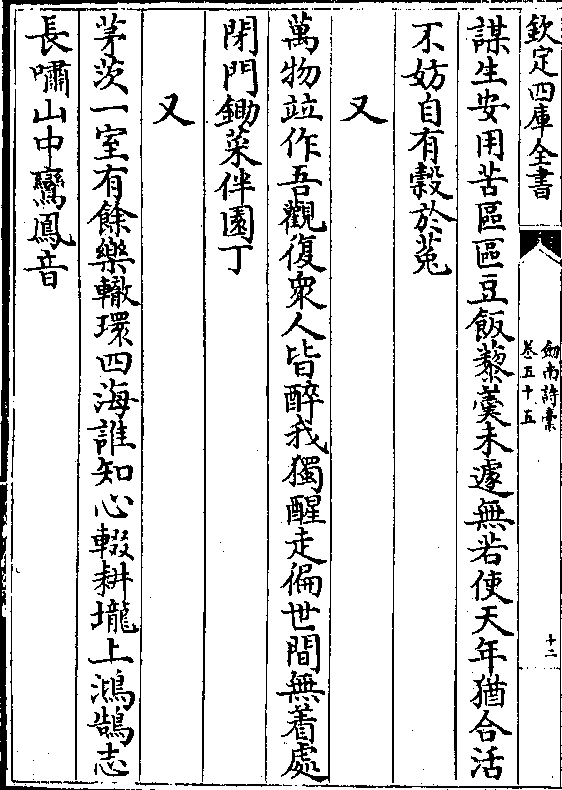 欽定四庫全書
劎南詩藁
卷五十五
十二
謀生安用苦區區豆飯藜羮未遽無若使天年猶合活
不妨自有穀於菟
又
萬物竝作吾觀復衆人皆醉我獨醒走徧世間無着處
閉門鋤菜伴園丁
又
茅茨一室有餘樂轍環四海誰知心輟耕壠上鴻鵠志
長嘯山中鸞鳳音